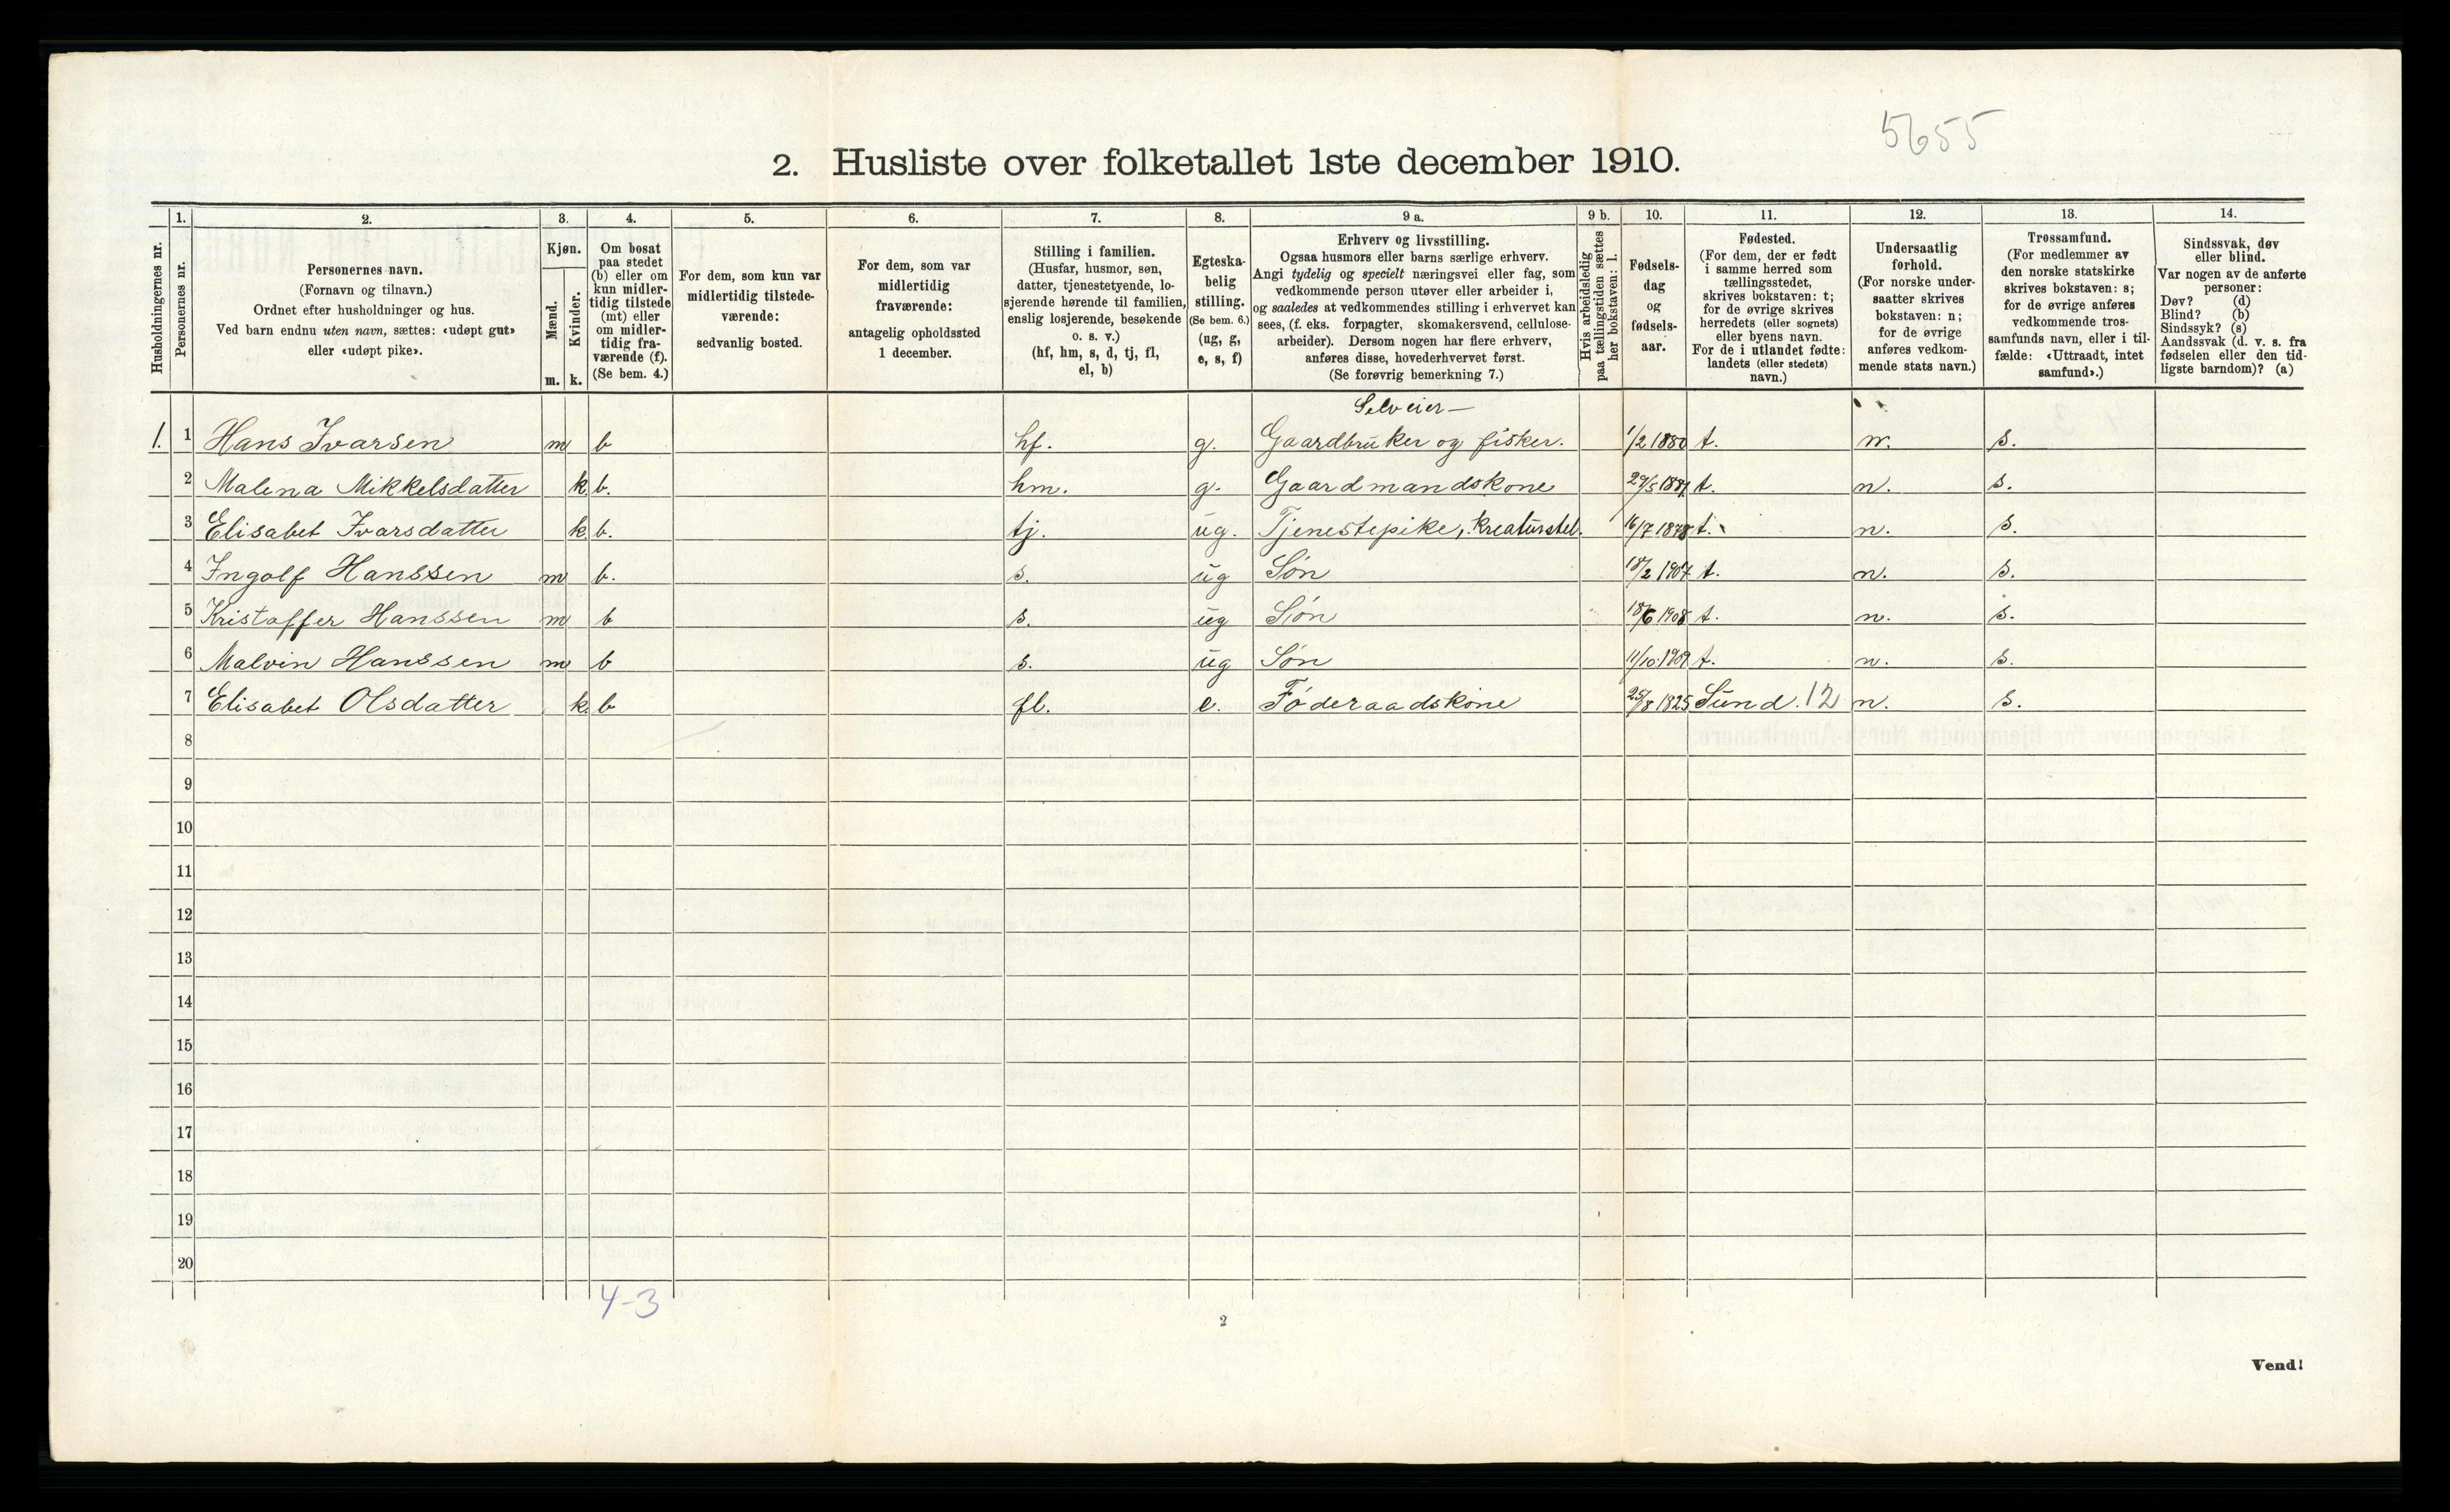 5655
2. Husliste over folketallet 1ste december 1910.
Husholdningernes nr.
1. Personernes nr.
2. Personernes navn.
(Fornavn og tilnavn.)
Ordnet efter husholdninger og hus.
Ved barn endnu uten navn, sættes: «udøpt gut»
eller «udøpt pike».
3. Kjøn.
Mænd. Kvinder.
m. k.
4. Om bosat
paa stedet
(b) eller om
kun midler-
tidig tilstede
(mt) eller
om midler-
tidig fra-
værende (f).
(Se bem. 4.)
5. For dem, som kun var
midlertidig tilstede-
værende:
sedvanlig bosted.
6. For dem, som var
midlertidig
fraværende:
antagelig opholdssted
1 december.
7. Stilling i familien.
(Husfar, husmor, søn,
datter, tjenestetyende, lo-
sjerende hørende til familien,
enslig losjerende, besøkende
o. s. v.)
(hf, hm, s, d, tj, fl,
el, b)
8. Egteska-
belig
stilling.
(Se bem. 6.)
(ug, g,
e, s, f)
9 a. Erhverv og livsstilling.
Ogsaa husmors eller barns særlige erhverv.
Angi tydelig og specielt næringsvei eller fag, som
vedkommende person utøver eller arbeider i,
og saaledes at vedkommendes stilling i erhvervet kan
sees, (f. eks. forpagter, skomakersvend, cellulose-
arbeider). Dersom nogen har flere erhverv,
anføres disse, hovederhvervet først.
(Se forøvrig bemerkning 7.)
9 b. Hvis arbeidsledig
paa tællingstiden sættes
her bokstaven: l.
10. Fødsels-
dag
og
fødsels-
aar.
11. Fødested.
(For dem, der er født
i samme herred som
tællingsstedet,
skrives bokstaven: t;
for de øvrige skrives
herredets (eller sognets)
eller byens navn.
For de i utlandet fødte:
landets (eller stedets)
navn.)
12. Undersaatlig
forhold.
(For norske under-
saatter skrives
bokstaven: n;
for de øvrige
anføres vedkom-
mende stats navn.)
13. Trossamfund.
(For medlemmer av
den norske statskirke
skrives bokstaven: s;
for de øvrige anføres
vedkommende tros-
samfunds navn, eller i til-
fælde: «Uttraadt, intet
samfund».)
14. Sindssvak, døv
eller blind.
Var nogen av de anførte
personer:
Døv? (d)
Blind? (b)
Sindssyk? (s)
Aandssvak (d. v. s. fra
fødselen eller den tid-
ligste barndom)? (a)
Selveier—
1. 1 Hans Ivarsen m b hf. g. Gaardbruker og fisker. 1/2 1880 t. n. s.
2 Malena Mikkelsdatter k. b. hm. g. Gaardmandskone 29/5 1881 t. n. s.
3 Elisabet Ivarsdatter k. b. tj. ug. Tjenestepike, kreaturstel. 16/7 1878 t. n. s.
4 Ingolf Hanssen m b. s. ug Søn 18/2 1907 t. n. s.
5 Kristoffer Hanssen m b s. ug Søn 18/6 1908 t. n. s.
6 Malvin Hanssen m b s. ug Søn 11/10 1909 t. n. s.
7 Elisabet Olsdatter k. b fl. e. Føderaadskone 25/8 1825 Sund. 12 n. s.
8
9
10
11
12
13
14
15
16
17
18
19
20
4-3
2
Vend!